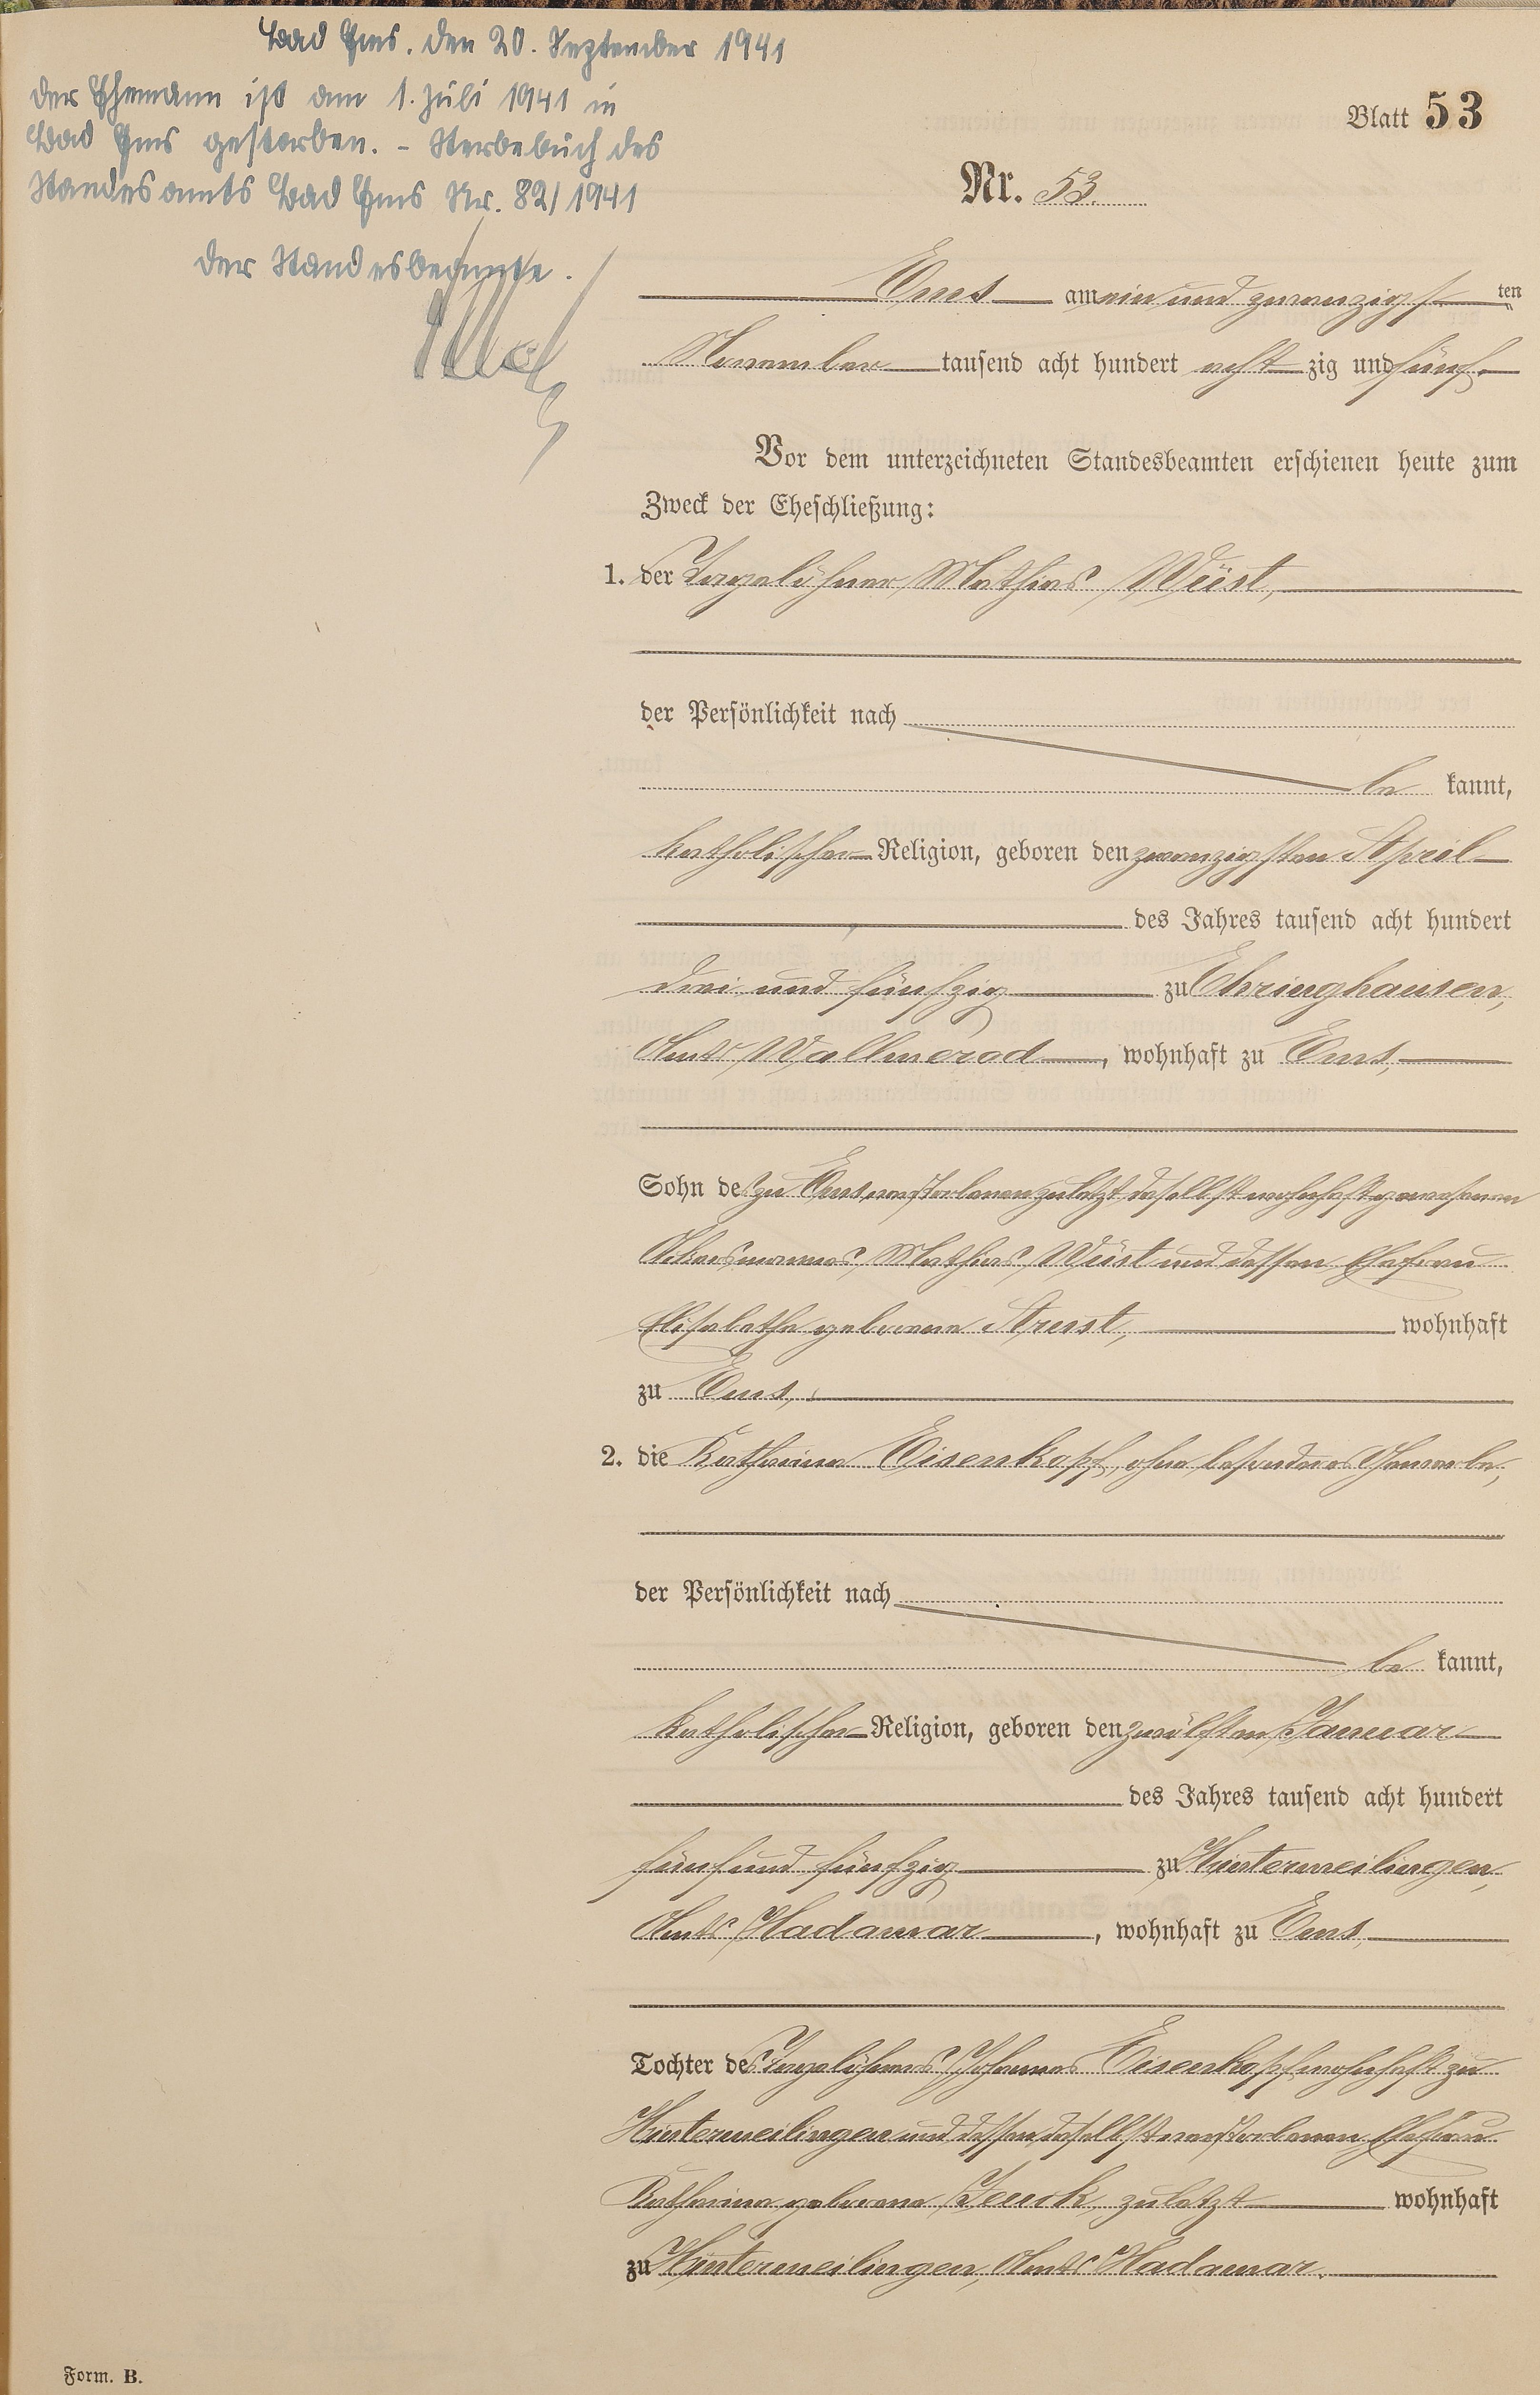 Bad Ems, den 20. September 1941
Der Ehemann ist am 1. Juli 1941 in
Bad Ems gestorben. - Sterbebuch des
Standesamts Bad Ems Nr. 82/1941
Der Standesbeamte.
Blatt 53
Nr. 53.
Ems am ein und zwanzigsten
November tausend acht hundert achtzig und fünf.
Vor dem unterzeichneten Standesbeamten erschienen heute zum
Zweck der Eheschließung:
1. der Tagelöhner Mathias Wüst,
der Persönlichkeit nach
be kannt,
katholischer Religion, geboren den zwanzigsten April
des Jahres tausend acht hundert
drei und fünfzig zu Ehringhausen,
Amts Wallmerod, wohnhaft zu Ems,
Sohn des zu Ems verstorbenen zuletzt daselbst wohnhaft gewesenen
Ackersmannes Mathias Wüst und dessen Ehefrau
Elisabetha geborene wohnhaft
zu Ems,
2. die Katharina Eisenkopf, ohne besonderes Gewerbe,
der Persönlichkeit nach
be kannt,
katholischer Religion, geboren den zwölften Januar
des Jahres tausend acht hundert
fünf und fünfzig zu Hintermeilingen,
Amts Hadamar, wohnhaft zu Ems,
Tochter des Tagelöhners Johannes Eisenkopf wohnhaft zu
Hintermeilingen und dessen daselbst verstorbenen Ehefrau
Katharina geborene Jeuck, zuletzt wohnhaft
zu Hintermeilingen, Amts Hadamar.
Form. B.